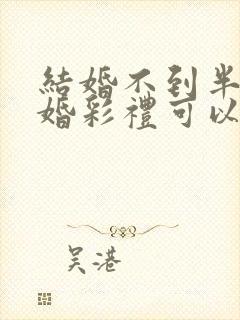 結婚不到半
婚彩禮可以
吴港